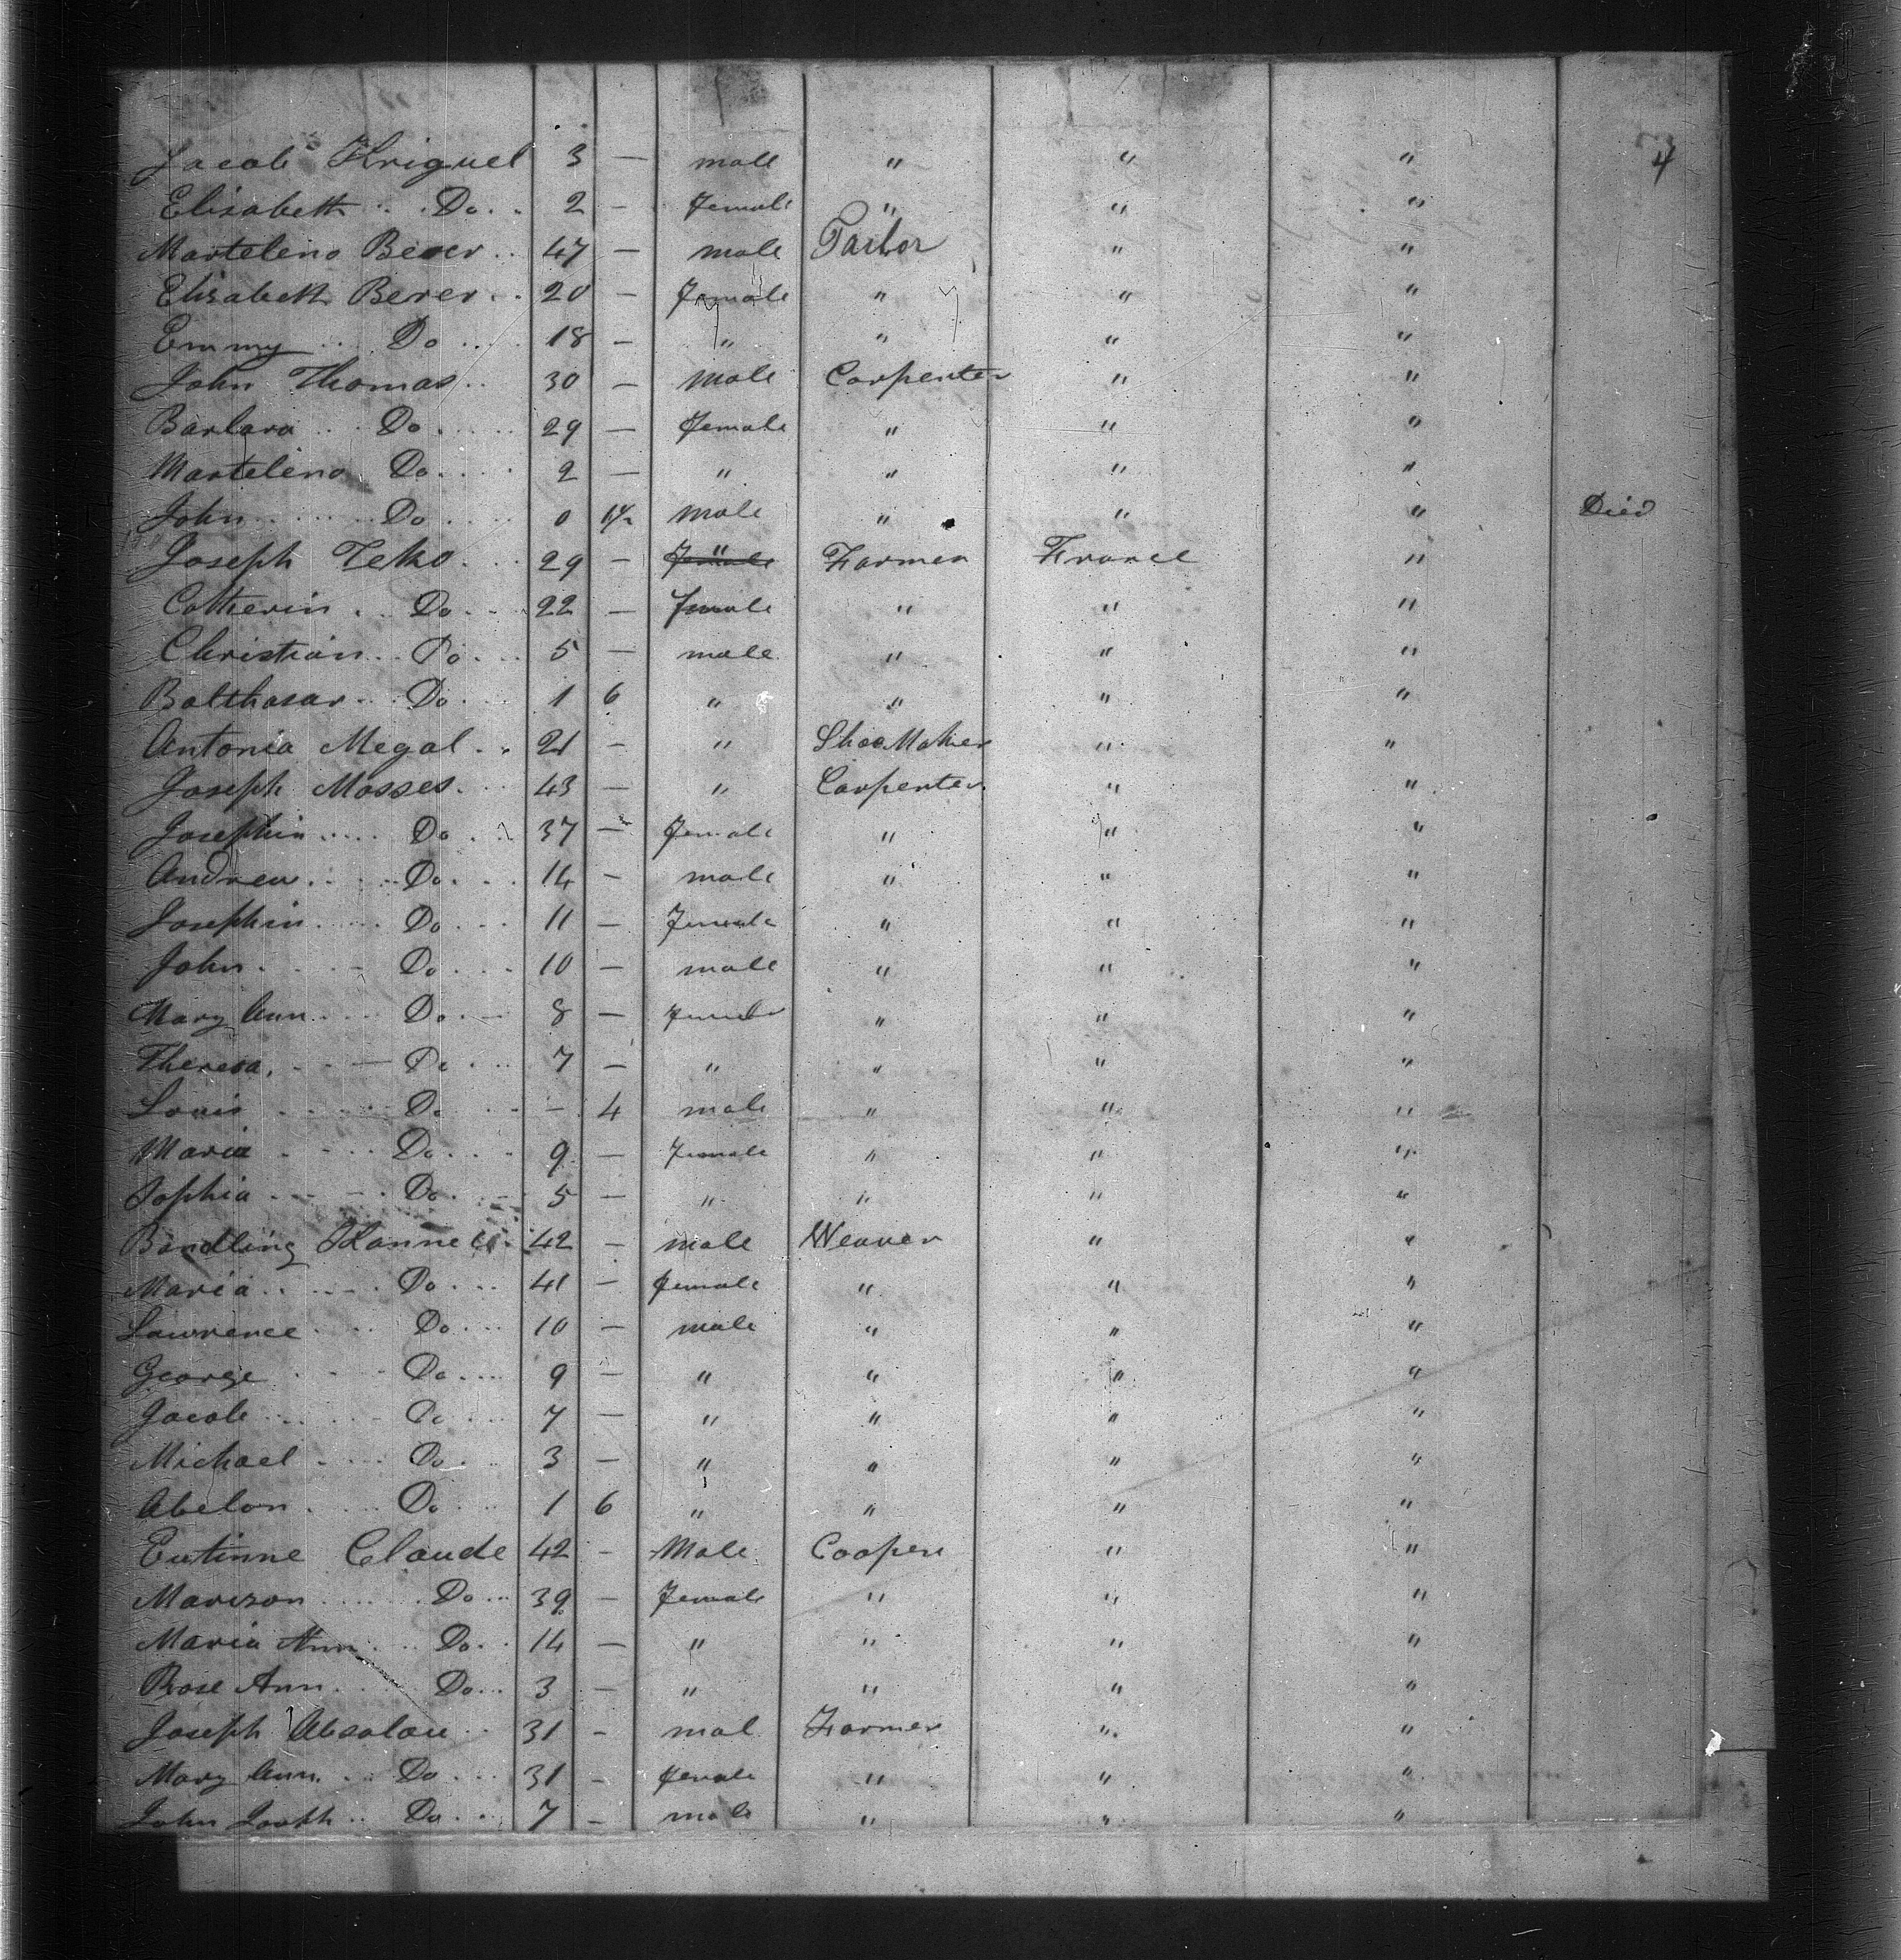 4
Jacob Kriguel 3 — male " " "
Elisabeth .. Do.. 2 — female " " "
Marteleno Beser.. 47 — male Tailor " "
Elisabeth Berer.. 20 — female " " "
Emmy ... Do.... 18 — " " " "
John Thomas.. 30 — male Carpenter " "
Barbara ... Do..... 29 — female " " "
Marteleno Do.... 2 — " " " "
John ........ Do..... 0 male " " " Died
Joseph Teko... 29 — " Farmer France "
Catherin ... Do... 22 — female " " "
Christian.. Do... 5 — male " " "
Balthasar.. Do... 1 6 " " " "
Antonia Megal.. 21 — " Shoe Maker " "
Joseph Mosses... 43 — " Carpenter " "
Josephin.... Do... 37 — female " " "
Andrew...... Do... 14 — male " " "
Josephin.... Do.... 11 — female " " "
John..... Do.... 10 — male " " "
Mary Ann.... Do... 8 — female " " "
Theresa, .. — Do... 7 — " " " "
Louis ...... Do — 4 male " " "
Maria ..... Do.... 9 — female " " "
Sophia ..... Do.... 5 — " " " "
Bandling 42 — male Weaver " "
Maria....... Do.... 41 — female " " "
Lawrence.... Do.... 10 — male " " "
George .... Do.... 9 — " " " "
Jacob ...... Do.... 7 — " " " "
Michael .... Do... 3 — " " " "
Abelon..... Do... 1 6 " " " "
Eutinne Claude 42 — Male Cooper " "
Marison ....... Do... 39 — female " " "
Maria Ann.... Do.. 14 — " " " "
Rose Ann..... Do... 3 — " " " "
Joseph Absalou.. 31 — mal Farmer " "
Mary Ann... Do.... 31 — female " " "
John Do... 7 — male " " "